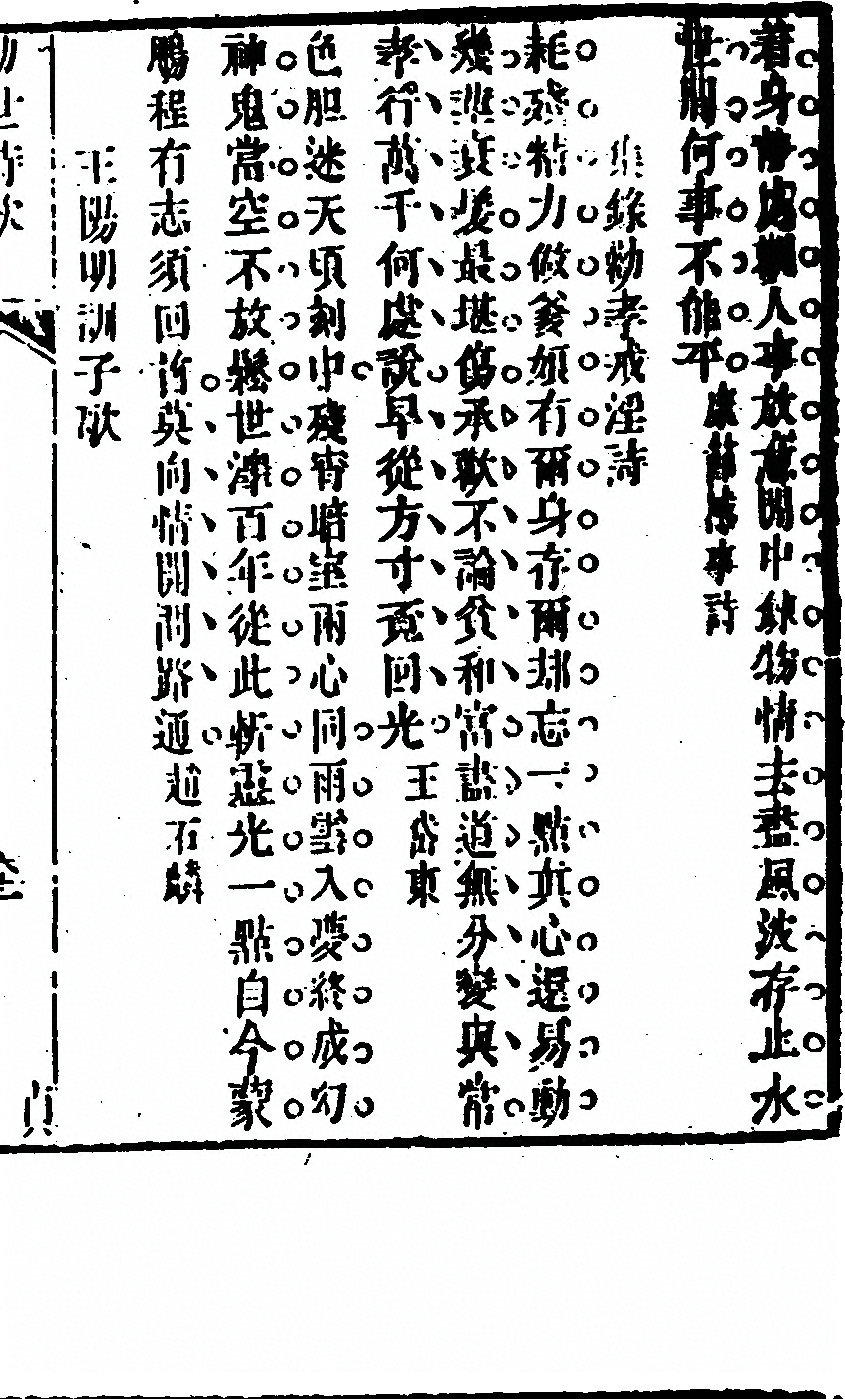 着身靜處觀人事放意閒中鍊物情去盡風波存止水
世間何事不能平 康節處事詩
集錄勸孝戒淫詩
耗殘精力做爹娘有爾身存爾却忘一點真心還易動
幾莖衰髮最堪傷承歡不論貧和富盡道無分變與常
孝行萬千何處說早從方寸覓回光 王岱東
色胆迷天頃刻中殘宵暗室兩心同雨雲入夢終成幻
神鬼當空不放鬆世澤百年從此斬靈光一點自今蒙
鵬程有志須回首莫向情開問路通 趙石麟
王陽明訓子歌
勸世詩次
貞